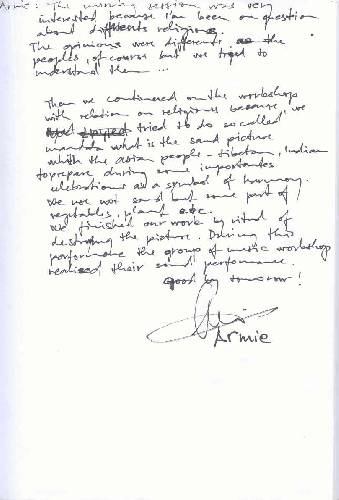 Armie: The morning session was very
interested because I've been on question
about differents religions.
The opinions were differents as the
peoples, of course but we tried to
understand them ...
Then we continuered on the workshop
with relation on religions because we
tried to do so called
mandala what is the sand picture
which the asian people - tibetan, indian
to prepare during some importantes
celebrations as a symbol of harmony.
We use not sand but some part of
vegetables, plant etc.
We finished our work by ritual of
destroing the picture. During this
performance the group of music workshop
realised their sound performance.
Good by tomorrow!
Armie